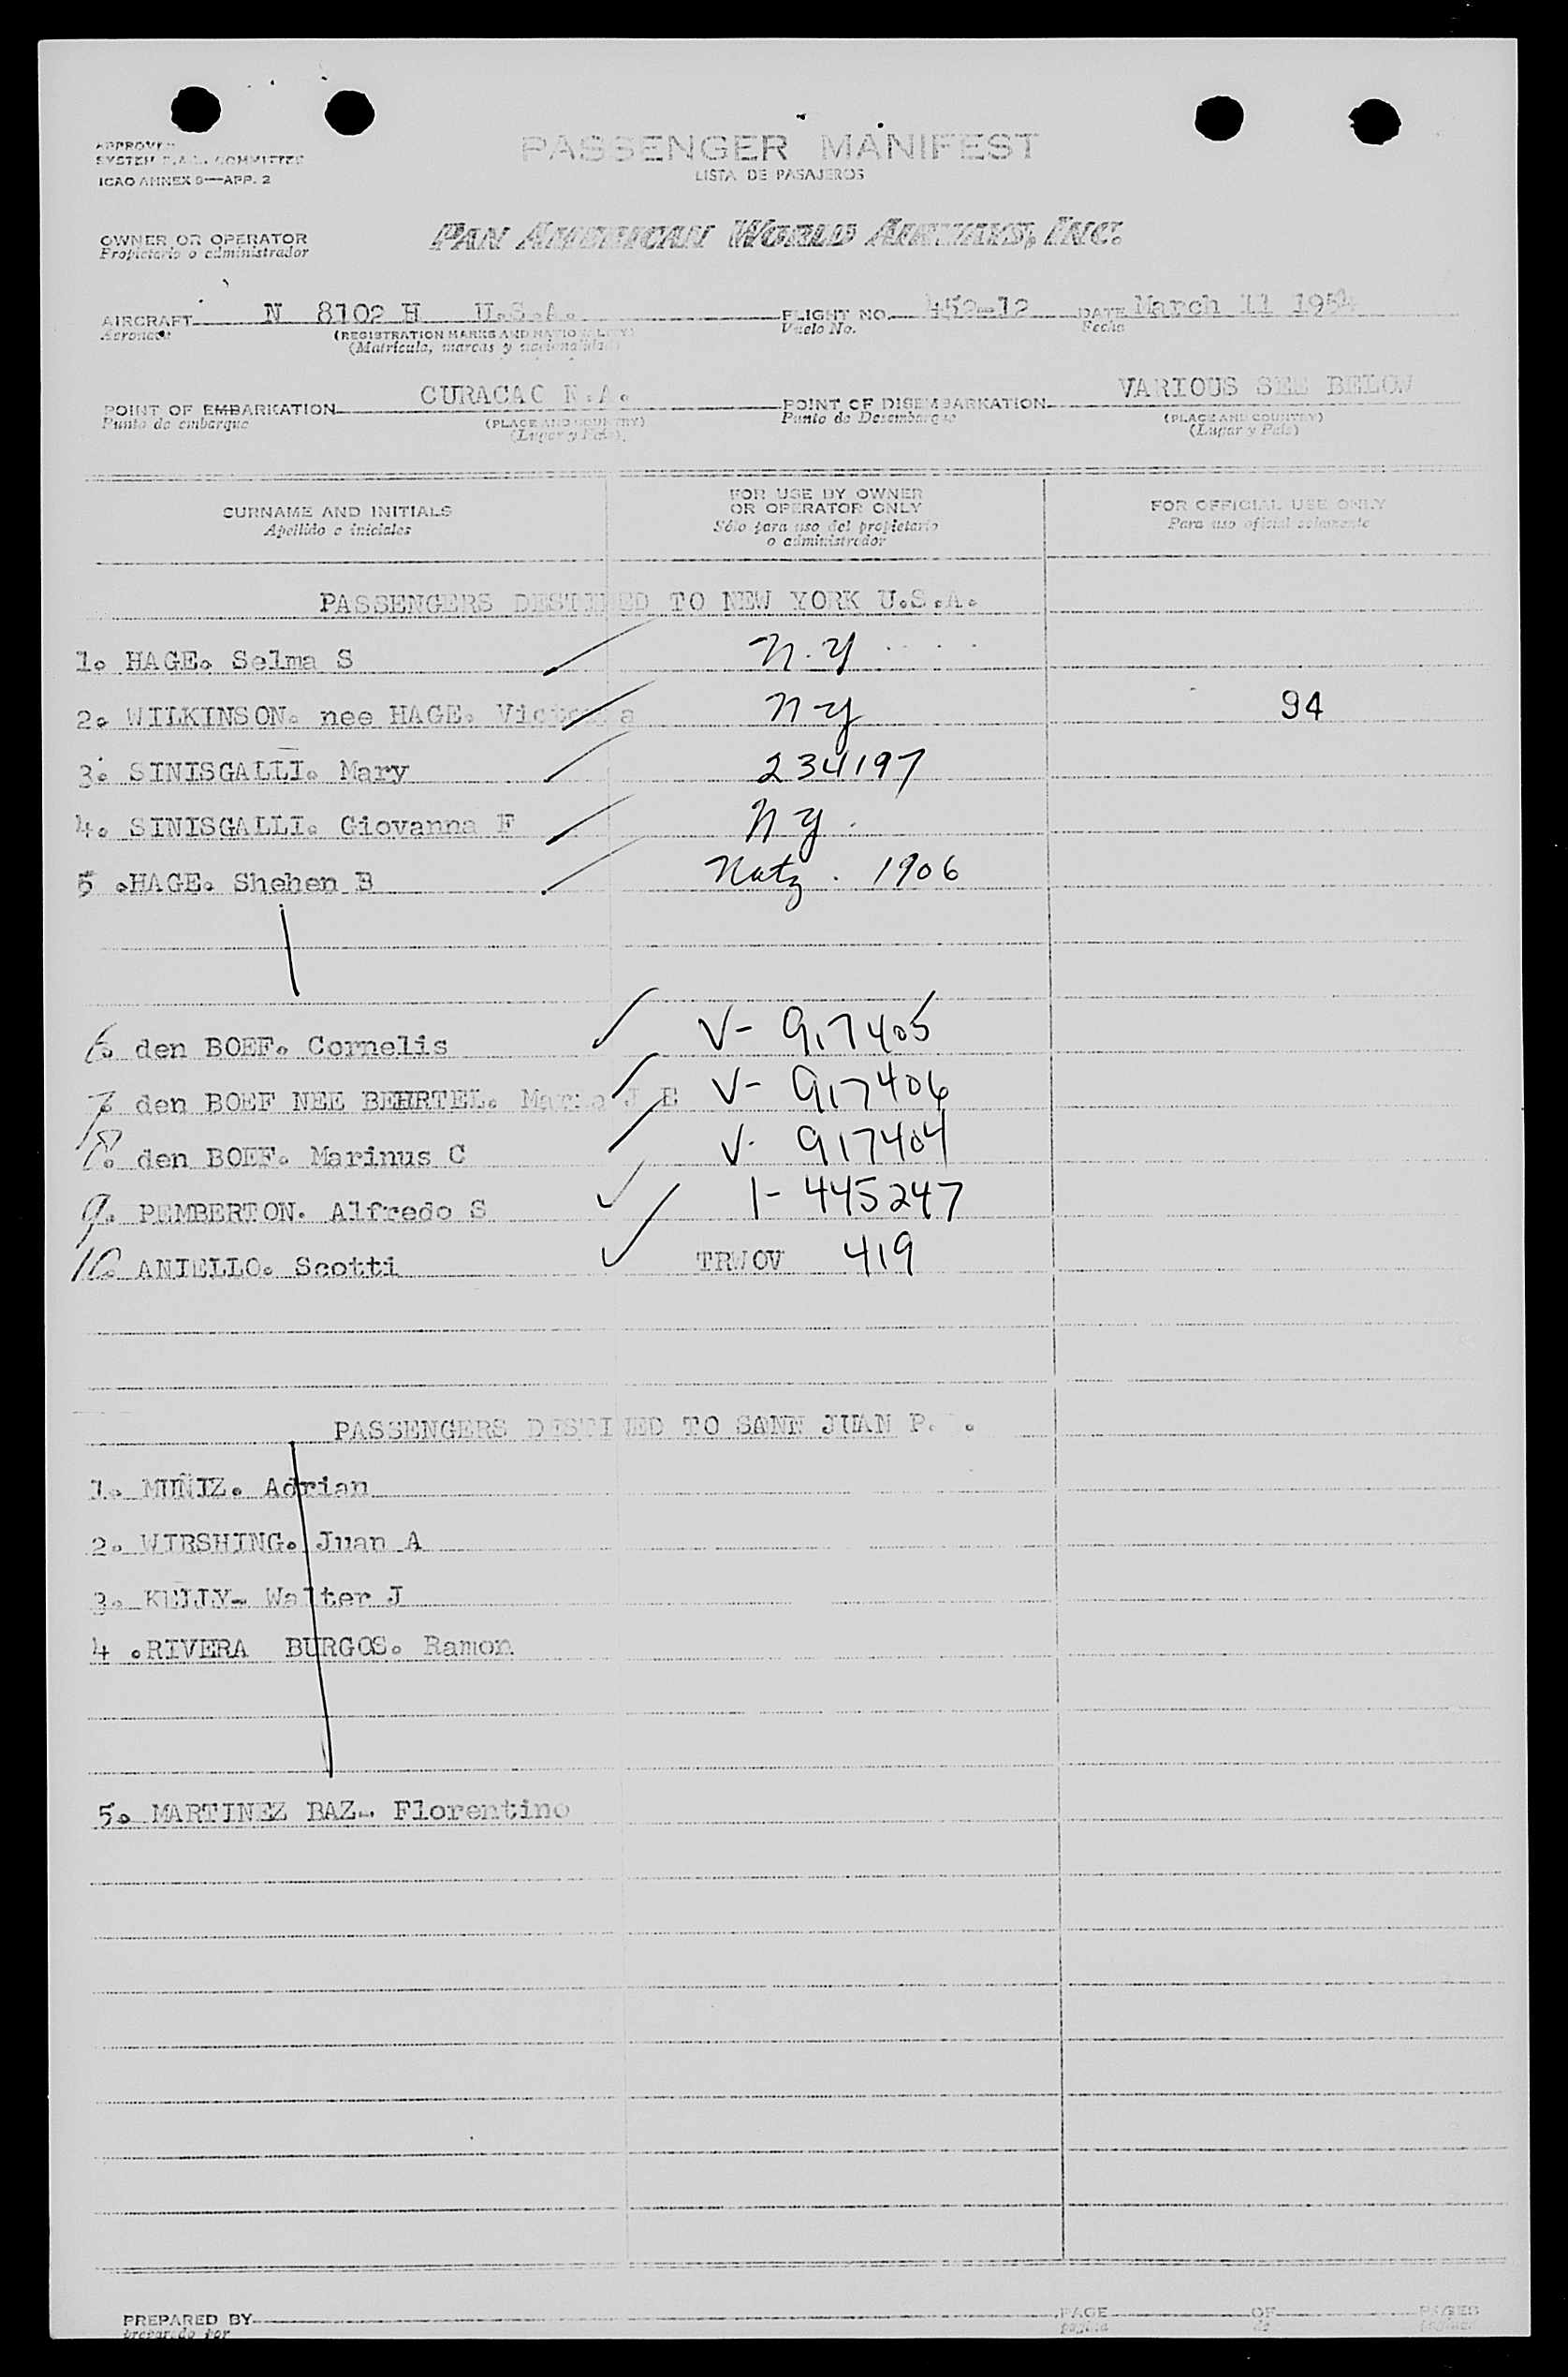 APPROVED
SYSTEM F.A.L. COMMITTEE
ICAO ANNEX 9—APP. 2
PASSENGER MANIFEST
LISTA DE PASAJEROS
OWNER OR OPERATOR
Propietario o administrador
PAN AMERICAN WORLD AIRWAYS, INC.
AIRCRAFT N 8102 H U.S.A. FLIGHT NO. 452-12 DATE March 11 1954
Aeronave (REGISTRATION MARKS AND NATIONALITY) Vuelo No. Fecha
(Matricula, marcas y nacionalidad)
POINT OF EMBARKATION CURACAO N.A. POINT OF DISEMBARKATION VARIOUS SEE BELOW
Punto de embarque (PLACE AND COUNTRY) Punto de Desembarque (PLACE AND COUNTRY)
(Lugar y País) (Lugar y País)
SURNAME AND INITIALS
Apellido e iniciales
FOR USE BY OWNER
OR OPERATOR ONLY
Sólo para uso del propietario
o administrador
FOR OFFICIAL USE ONLY
Para uso oficial solamente
PASSENGERS DESTINED TO NEW YORK U.S.A.
1. HAGE. Selma S N.Y
2. WILKINSON. nee HAGE. Victoria NY 94
3. SINISGALLI. Mary 234197
4. SINISGALLI. Giovanna F NY.
5 .HAGE. Shehen B Natz. 1906
6. den BOEF. Cornelis V- 917405
7. den BOEF NEE BEHRTEL. J E V- 917406
8. den BOEF. Marinus C V- 917404
9. PEMBERTON. Alfredo S 1- 445247
10. ANIELLO. Scotti TRWOV 419
PASSENGERS DESTINED TO SANN JUAN P. .
1. MUÑIZ. Adrian
2. WIRSHING. Juan A
3. KELLY. Walter J
4 .RIVERA BURGOS. Ramon
5. MARTINEZ BAZ. Florentino
PREPARED BY PAGE OF PAGES
preparado por página de páginas